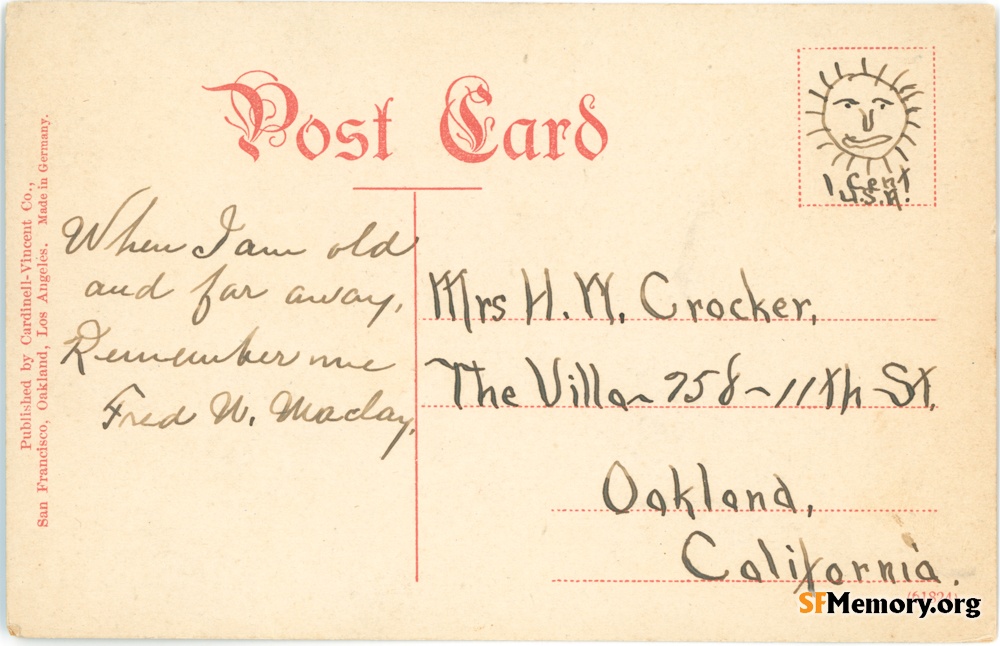 Post Card
1 Cent
U.S.A.
Published by Cardinell-Vincent Co.,
San Francisco, Oakland, Los Angeles. Made in Germany.
When I am old
and far away,
Remember me
Fred W. Maclay.
Mrs H. M. Crocker,
The Villa~758~11th St.
Oakland,
California.
(61824)
SFMemory.org